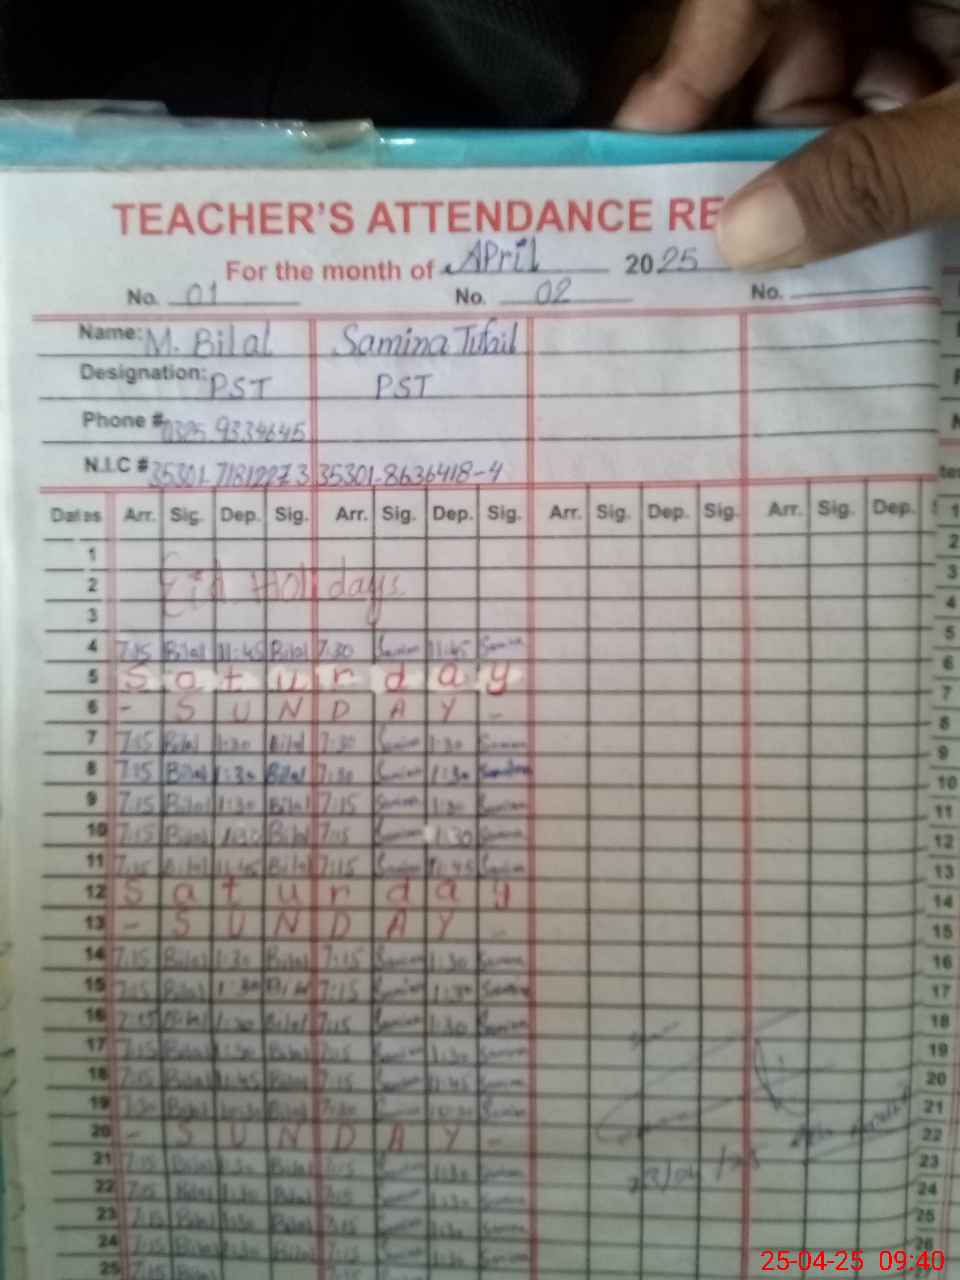 TEACHER'S ATTENDANCE RE
For the month of April 2025
No. 01 No. 02 No.
Name: M. Bilal Samina Tufail
Designation: PST PST
Phone # 0325 9334645
N.I.C # 35301-7181227 3 35301-8636418-4
Dates Arr. Sig. Dep. Sig. Arr. Sig. Dep. Sig. Arr. Sig. Dep. Sig. Arr. Sig. Dep.
1
2 Eid Holidays
3
4 7:15 Bilal 11:45 Bilal 7:30 Samina 11:45 Samina
5 Saturday
6 - SUNDAY -
7 7:15 Bilal 1:30 Bilal 7:30 Samina 1:30 Samina
8 7:15 Bilal 1:30 Bilal 7:30 Samina 1:30 Samina
9 7:15 Bilal 1:30 Bilal 7:15 Samina 1:30 Samina
10 7:15 Bilal 1:30 Bilal 7:15 Samina 1:30 Samina
11 7:15 Bilal 11:45 Bilal 7:15 Samina 11:45 Samina
12 Saturday
13 - SUNDAY -
14 7:15 Bilal 1:30 Bilal 7:15 Samina 1:30 Samina
15 7:15 Bilal 1:30 Bilal 7:15 Samina 1:30 Samina
16 7:15 Bilal 1:30 Bilal 7:15 Samina 1:30 Samina
17 7:15 Bilal 1:30 Bilal 7:15 Samina 1:30 Samina
18 7:15 Bilal 11:45 Bilal 7:15 Samina 11:45 Samina
19 7:30 Bilal 10:30 Bilal 7:30 Samina 10:30 Samina
20 - SUNDAY -
21 7:15 Bilal 1:30 Bilal 7:15 Samina 1:30 Samina
22 7:15 Bilal 1:30 Bilal 7:15 Samina 1:30 Samina
23 7:15 Bilal 1:30 Bilal 7:15 Samina 1:30 Samina
24 7:15 Bilal 1:30 Bilal 7:15 Samina 1:30 Samina
25 7:15
23/04/25
1
2
3
4
5
6
7
8
9
10
11
12
13
14
15
16
17
18
19
20
21
22
23
24
25
26
25-04-25 09:40